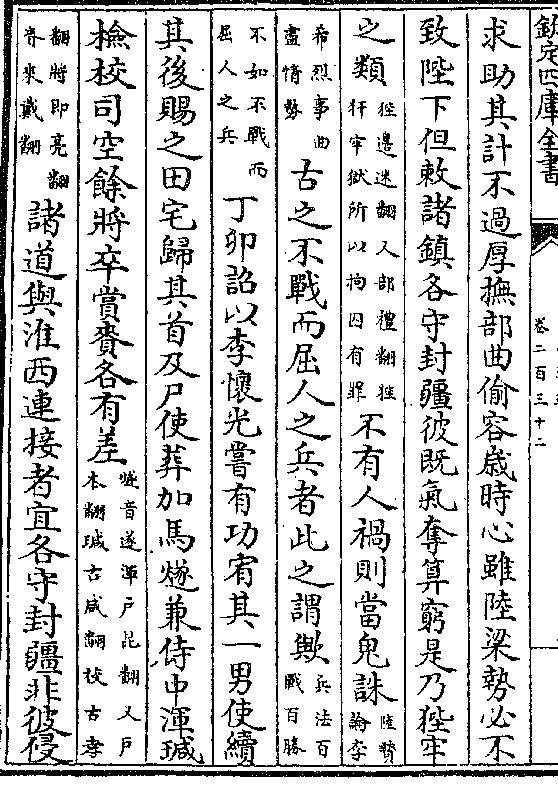 欽定四庫全書
卷二百三十二
求助其計不過厚撫部曲偷容歲時心雖陸梁勢必不
致陛下但敕諸鎮各守封疆彼既氣奪算窮是乃狴牢
之類狴邊迷翻又部禮翻狴犴牢獄所以拘囚有罪不有人禍則當鬼誅陸贄論李
希烈事曲盡情勢古之不戰而屈人之兵者此之謂歟兵法百戰百勝
不如不戰而屈人之兵丁卯詔以李懷光嘗有功宥其一男使續
其後賜之田宅歸其首及尸使葬加馬燧兼侍中渾瑊
檢校司空餘將卒賞賚各有差燧音遂渾戶昆翻又戶本翻瑊古咸翻校古孝
翻將即亮翻賚來戴翻諸道與淮西連接者宜各守封疆非彼侵